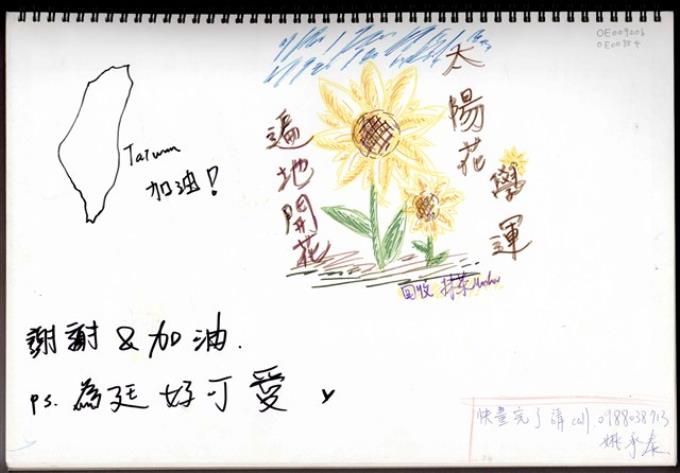 OE009203
OE00354
Taiwan
加油!
太陽花
學運
遍地開花
回收 抹茶
謝謝&加油.
ps. 為廷好可愛
快畫完了請 call 0988038713